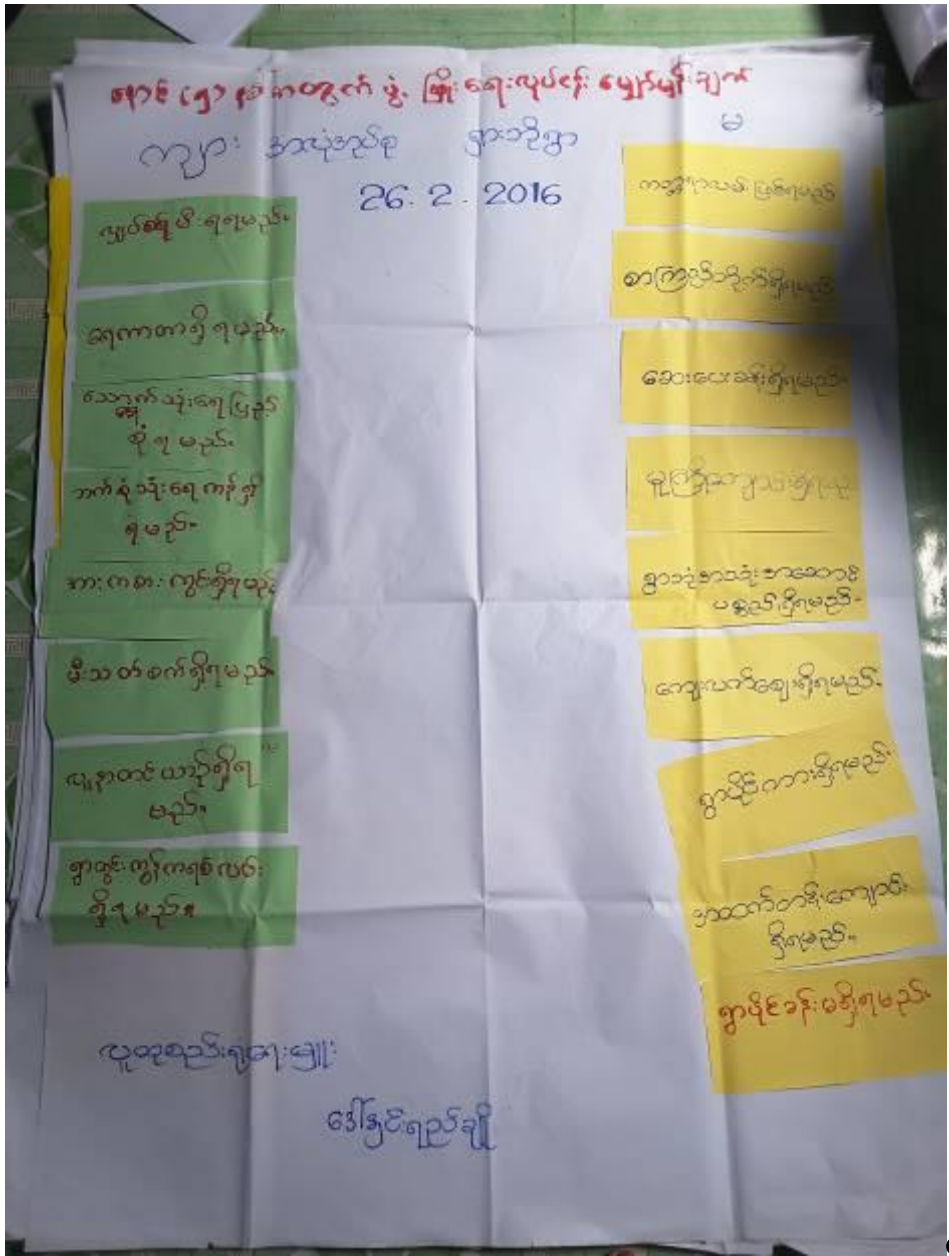 နောင် (၅) နှစ် အတွက် ဖွံ့ဖြိုးရေးလုပ်ငန်း မျှော်မှန်းချက်
ကျား အာလုံးအုပ်စု ရှားဘိုရွာ မ
26.2.2016
လျှပ်စစ်မီး ရရမည်။
ရေကာတာရှိ ရမည်။
သောက်သုံးရေ ပြည့်
စုံ ရ မည်။
ဘက်စုံသုံးရေကန်ရှိ
ရမည်။
အားကစားကွင်းရှိရမည်
မီးသတ်စက်ရှိရမည်
လူနာတင်ယာဉ်ရှိရ
မည်။
ရွာတွင်းကွန်ကရစ်လမ်း
ရှိရမည်။
ကတ္တရာလမ်းဖြစ်ရမည်
စာကြည့်တိုက်ရှိရမည်
ဆေးပေးခန်းရှိရမည်။
မူကြိုကျောင်းရှိရမည်
ရွာသုံးအသုံးအဆောင်
ပစ္စည်းရှိရမည်။
ကျေးလက်ဈေးရှိရမည်။
ရွာပိုင်ကားရှိရမည်။
အထက်တန်းကျောင်း
ရှိရမည်။
ရွာပိုင်ခန်းမရှိရမည်။
လူထုစည်းရုံးရေးမှူး
ဒေါ်နှင်းရည်ချို